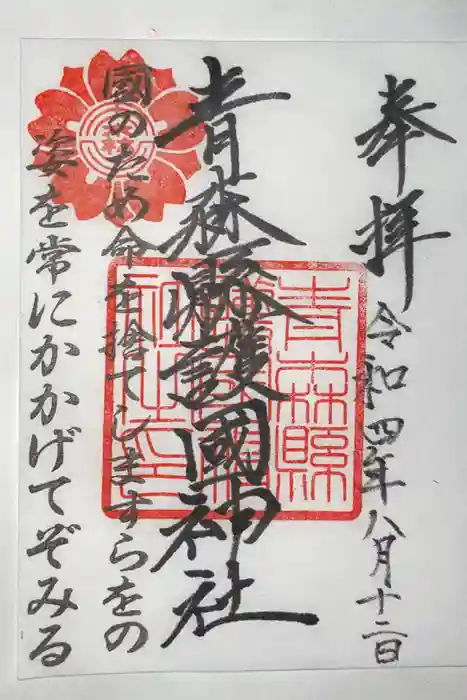 奉拝
令和四年八月十二日
青森縣護國神社
國のため命を捨てしますらをの
姿を常にかかげてぞみる
青森縣